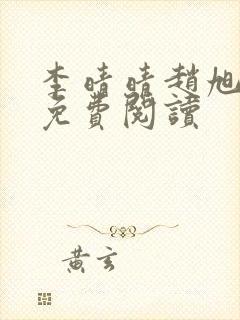 李晴晴趙旭
免費閱讀
黃玄